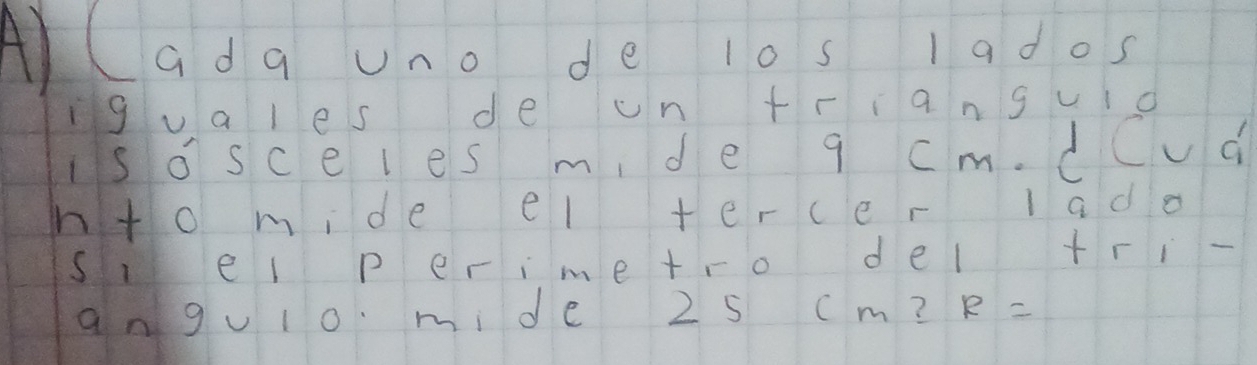 A) Cada uno de los lados
iguales de un triangulo
isósceles mide 9 cm. ¿Cuá
nto mide el tercer lado
si el perimetro del tri-
angulo. mide 25 cm? R=